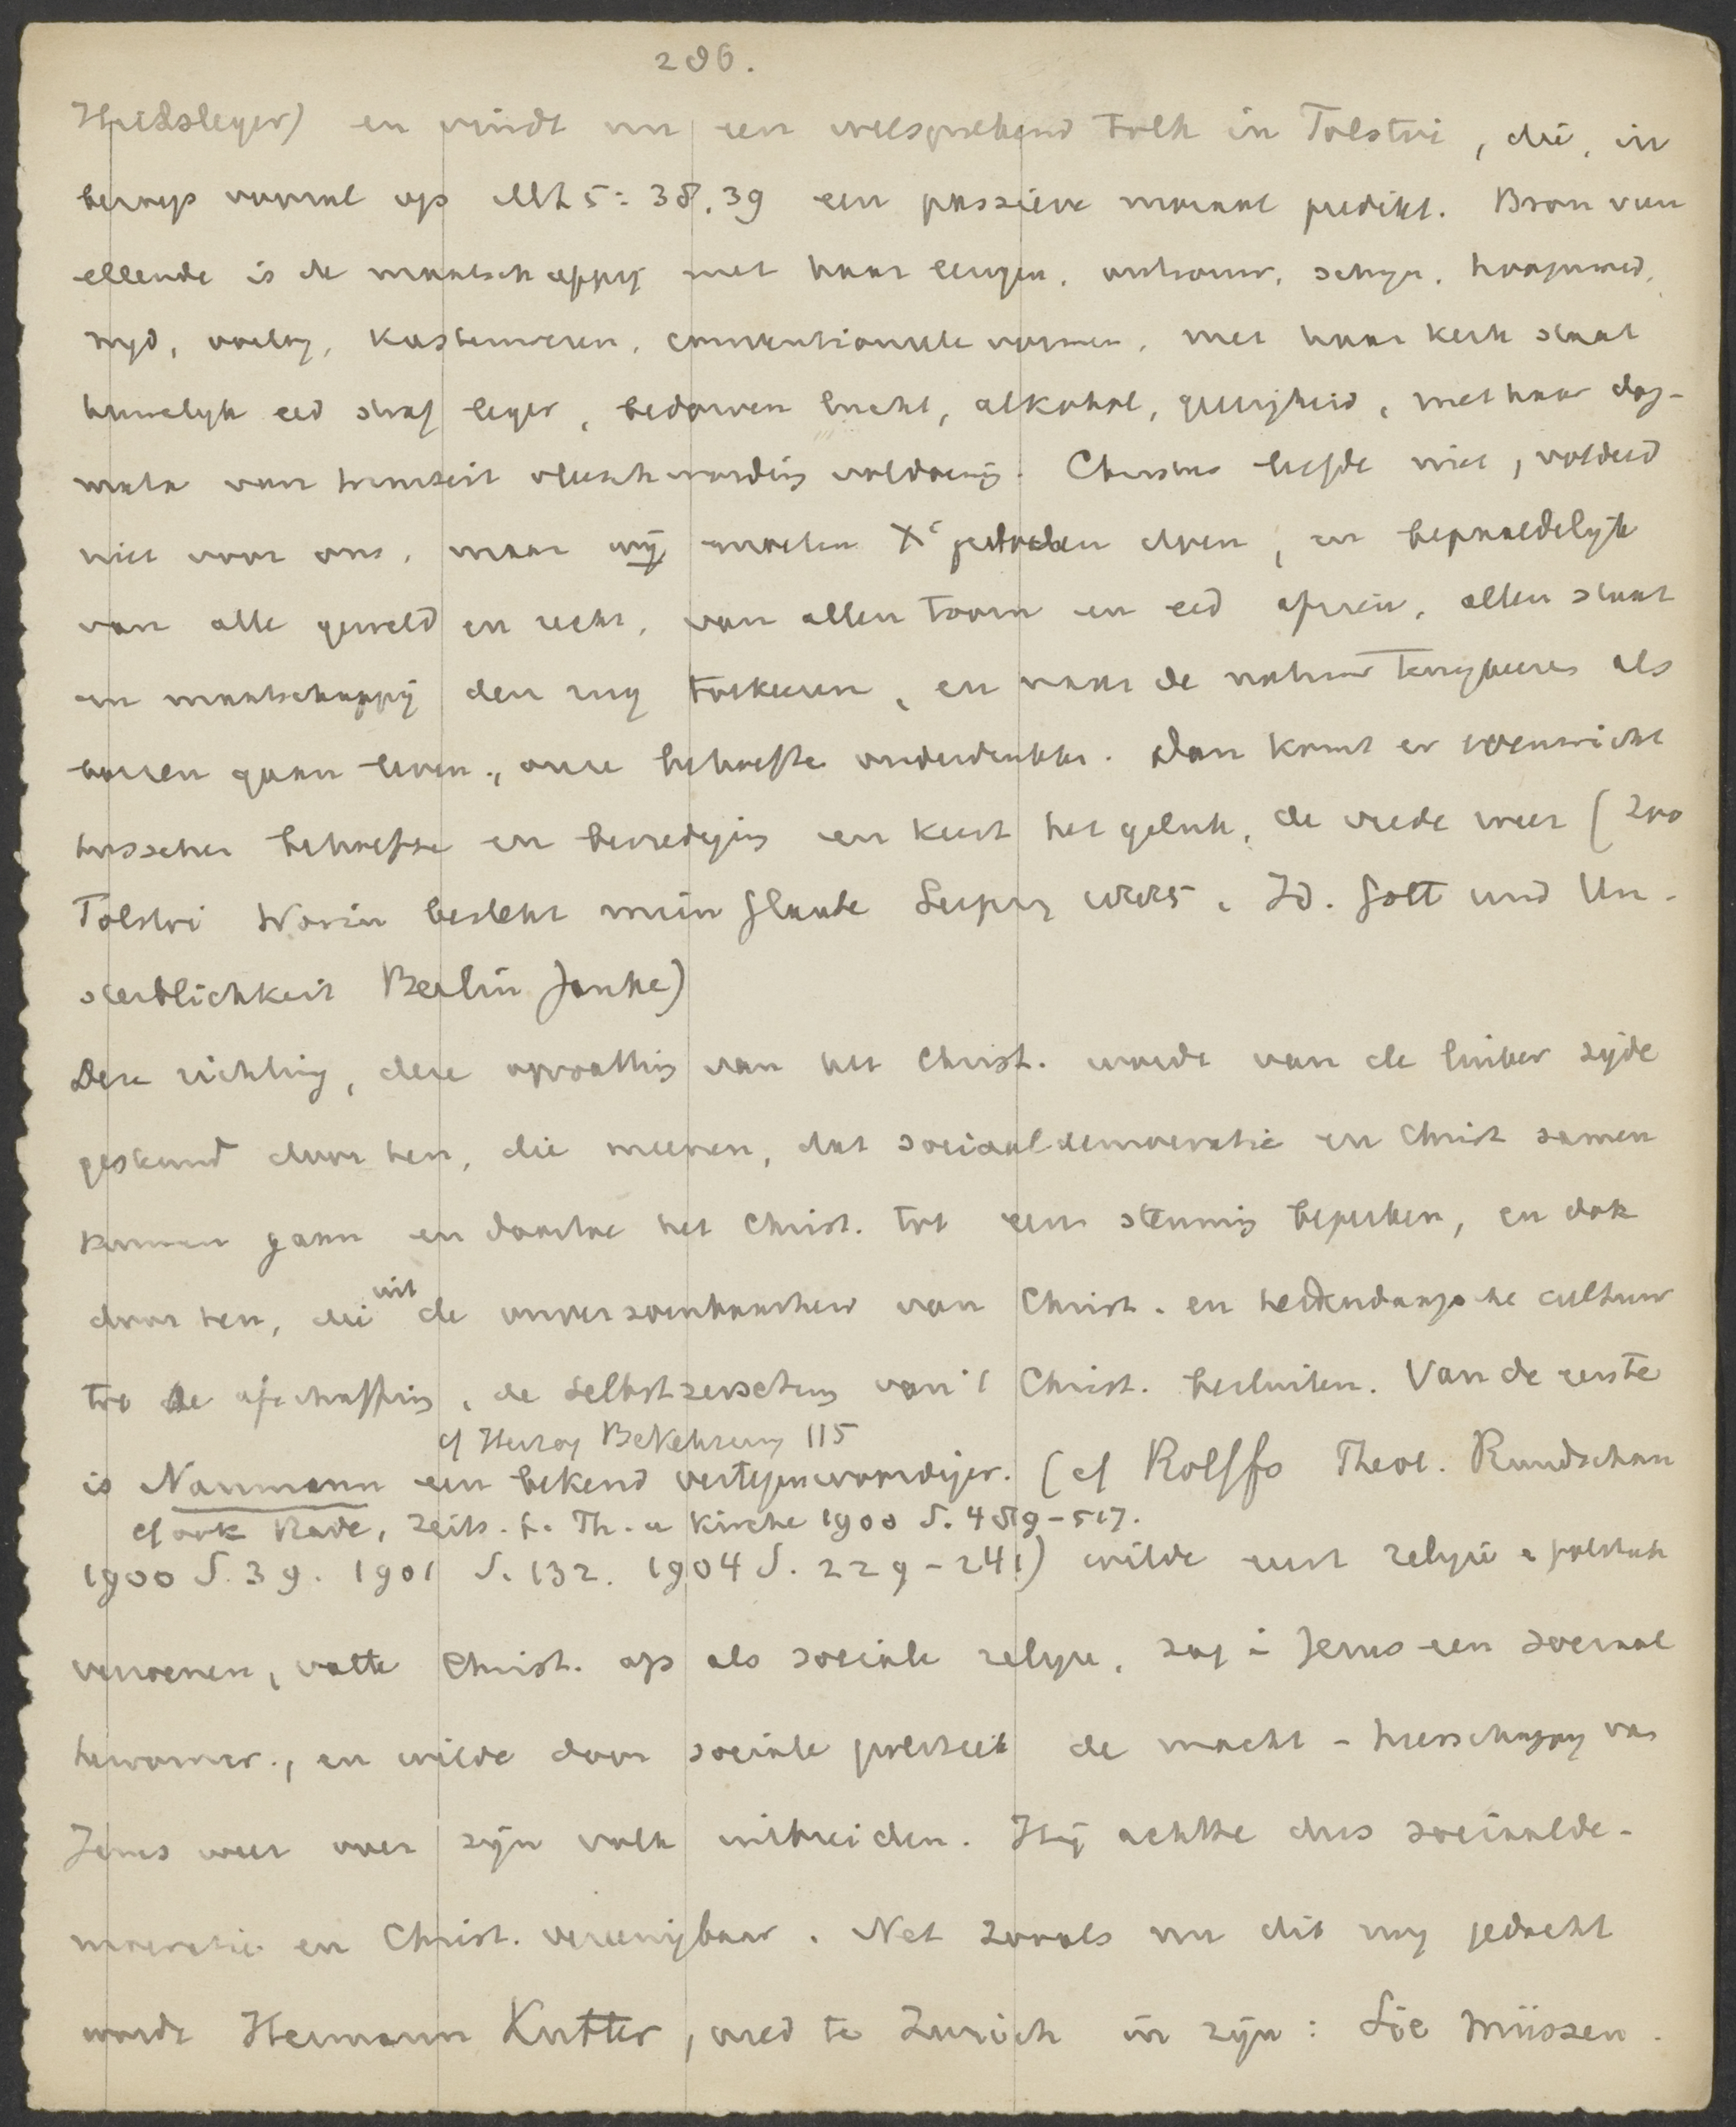 286.
en vindt nu een welsprekend tolk in Tolstoi, die, in
beroep vooral op Mt 5:38.39 een passieve moraal predikt. Bron van
ellende is de maatschappij met haar leugen, ontrouw, schijn, hoogmoed,
nijd, oorlog, kastenwezen, conventioneele vormen, met haar kerk staat
huwelijk eed straf leger, bedorven lucht, alkohol, met haar dog-
mata van triniteit vleeschwording voldoening. Christus leefde niet, voldeed
niet voor ons, maar wij moeten Xs geboden doen, en bepaaldelijk
van alle geweld en recht, van allen toorn en eed afzien, allen staat
en maatschappij den rug toekeeren, en naar de natuur terugkeeren als
boeren gaan leven, onze behoeften onderdrukken. Dan komt er evenwicht
tusschen behoefte en bevrediging en keert het geluk, de vrede weer (Zoo
Tolstoi Worin besteht mein Glaube Leipzig 1885. Id. Gott und Un-
sterblichkeit Berlin Janke)
Deze richting, deze opvatting van het Christ. werd van de linker zijde
gesteund door hen, die meenen, dat sociaaldemocratie en Christ samen
kunnen gaan en daartoe het Christ. tot een stemming beperken, en ook
door hen, die uit de onverzoenbaarheid van Christ. en hedendaagsche cultuur
tot de afschaffing, de Selbstzersetzung van 't Christ. besluiten. Van de eerste
cf Herzog Bekehrung 115
is Naumann een bekend vertegenwoordiger. (cf Rolffs Theol. Rundschau
cf ook Rade, Zeits. f. Th. u Kirche 1900 S. 489-517.
1900 S. 39. 1901 S. 132. 1904 S. 229-241) wilde eerst religie & politiek
verzoenen, vatte Christ. op als sociale religie, zag in Jezus een sociaal
hervormer, en wilde door sociale politiek de macht - heerschappij van
Jezus weer over zijn volk uitbreiden. Hij achtte dus sociaalde-
mocratie en Christ. vereenigbaar. Net zooals nu dit nog gedacht
wordt Hermann Kutter, pred te Zurich in zijn: Sie müssen.